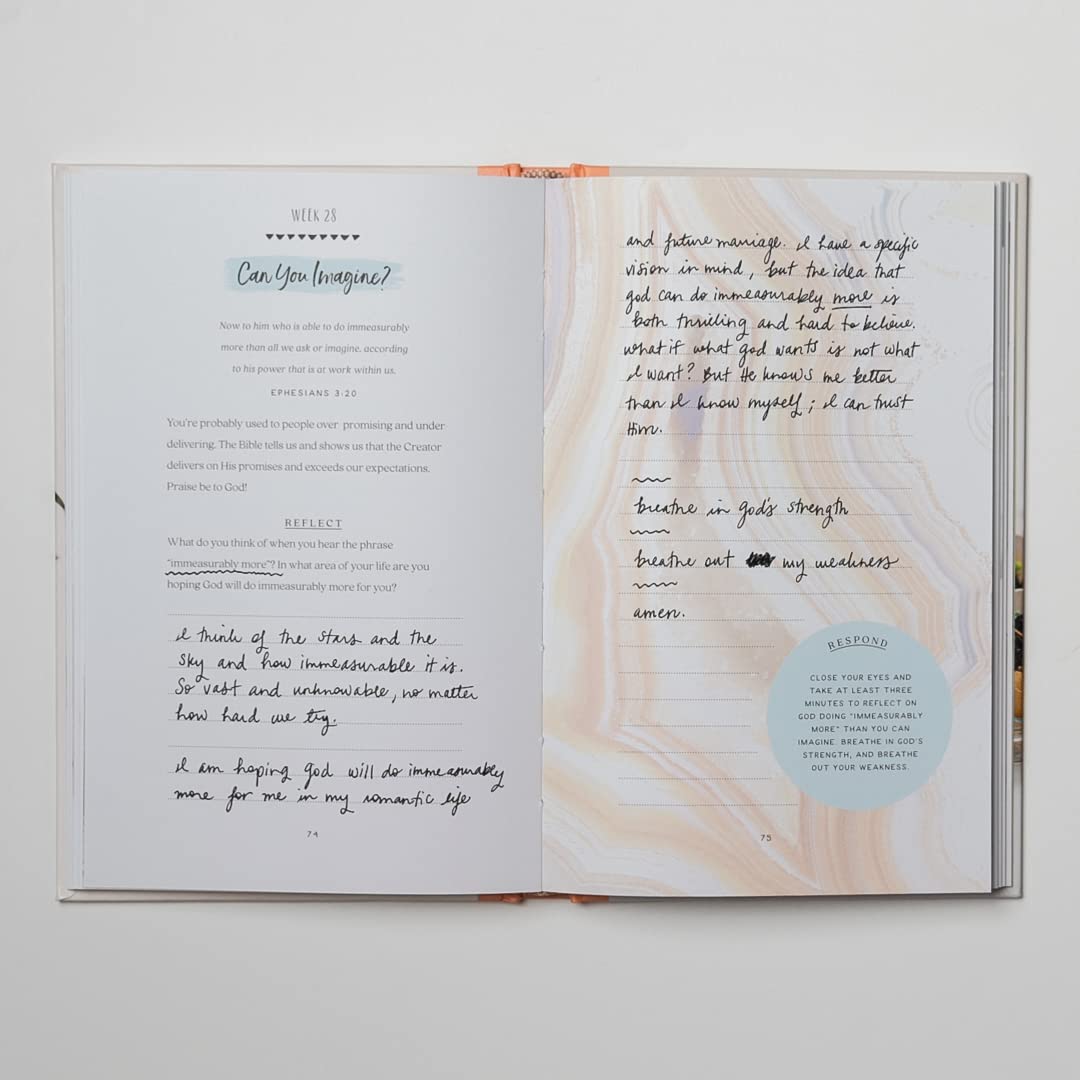 WEEK 28
Can You Imagine?
Now to him who is able to do immeasurably
more than all we ask or imagine, according
to his power that is at work within us.
EPHESIANS 3:20
You're probably used to people over promising and under
delivering. The Bible tells us and shows us that the Creator
delivers on His promises and exceeds our expectations.
Praise be to God!
REFLECT
What do you think of when you hear the phrase
"immeasurably more"? In what area of your life are you
hoping God will do immeasurably more for you?
I think of the stars and the
sky and how immeasurable it is.
So vast and unknowable, no matter
how hard we try.
I am hoping god will do immeasurably
more for me in my romantic life
74
and future marriage. I have a specific
vision in mind, but the idea that
god can do immeasurably more is
both thrilling and hard to believe.
what if what god wants is not what
I want? But He knows me better
than I know myself; I can trust
Him.
breathe in god's strength
breathe out my weakness
amen.
RESPOND
CLOSE YOUR EYES AND
TAKE AT LEAST THREE
MINUTES TO REFLECT ON
GOD DOING "IMMEASURABLY
MORE" THAN YOU CAN
IMAGINE. BREATHE IN GOD'S
STRENGTH, AND BREATHE
OUT YOUR WEAKNESS.
75